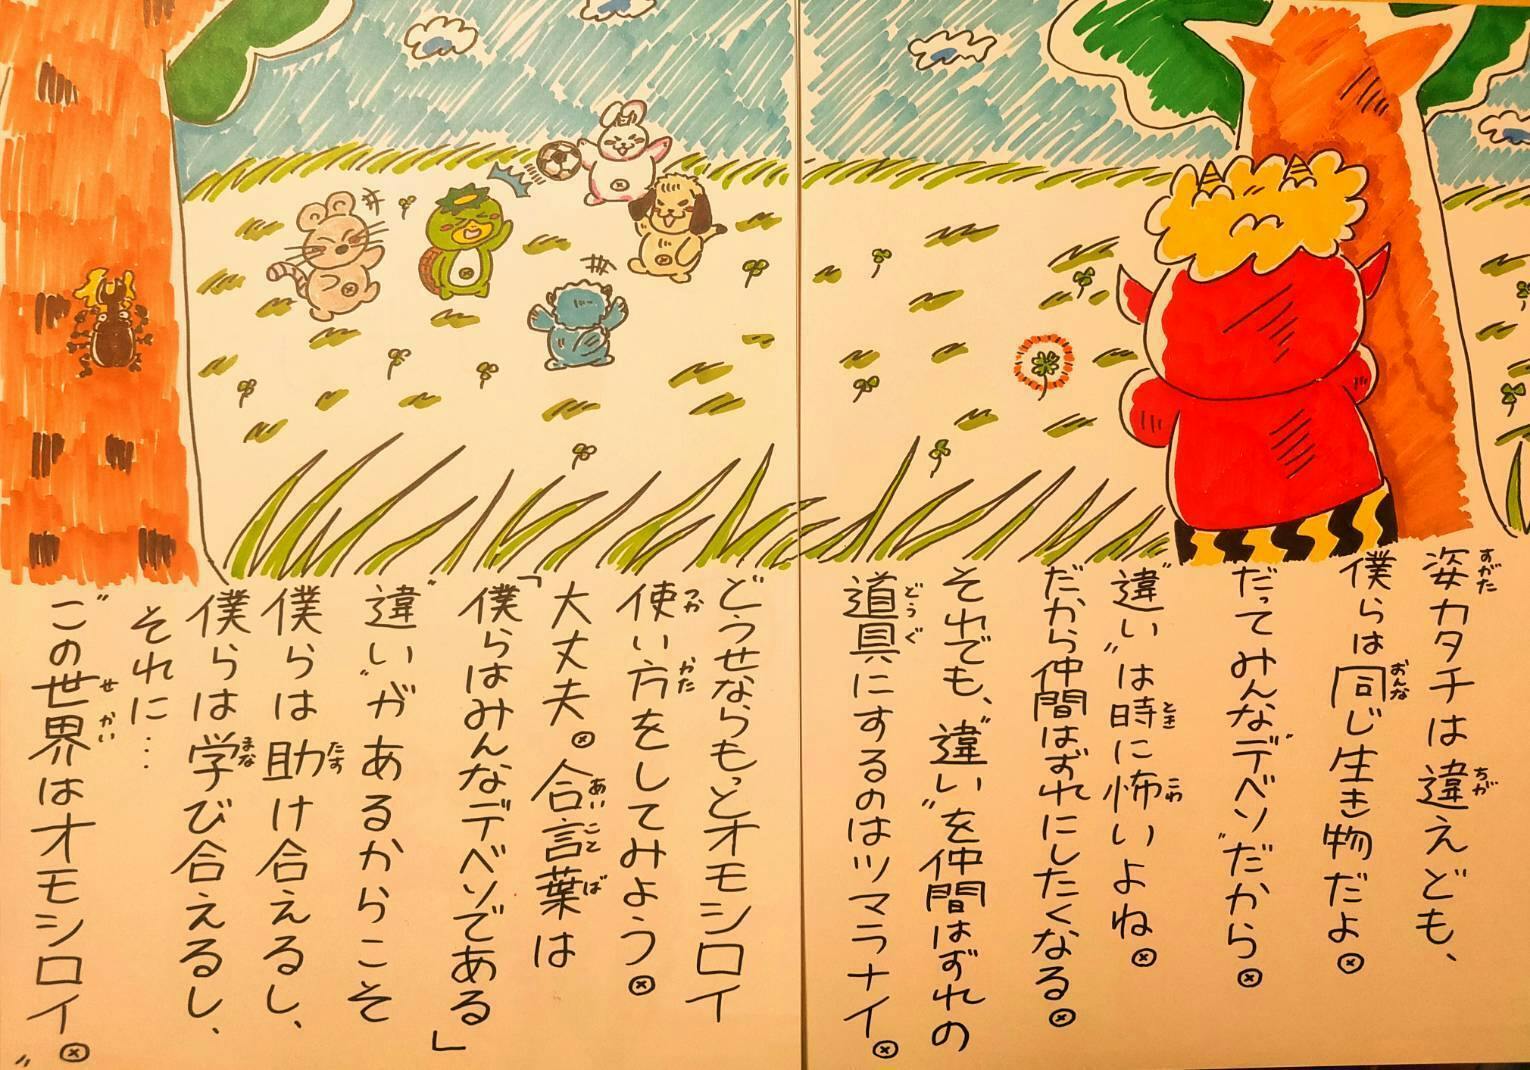 姿カタチは違えども、
僕らは同じ生き物だよ。
だってみんな“デベソ”だから。
“違い”は時に怖いよね。
だから仲間はずれにしたくなる。
それでも、“違い”を仲間はずれの
道具にするのはツマラナイ。
どうせならもっとオモシロイ
使い方をしてみよう。
大丈夫。合言葉は
「僕らはみんなデベソである」
“違い”があるからこそ
僕らは助け合えるし、
僕らは学び合えるし、
それに…
“この世界はオモシロイ。”